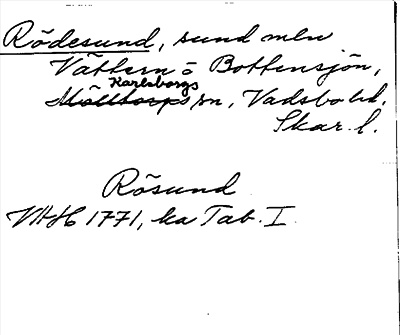 Rödesund, sund mln
Vättern o Bottensjön,
Karlsborgs
Mölltorps sn, Vadsbo hd.
Skar. l.
Rösund
VAH 1771, ka Tab. I.